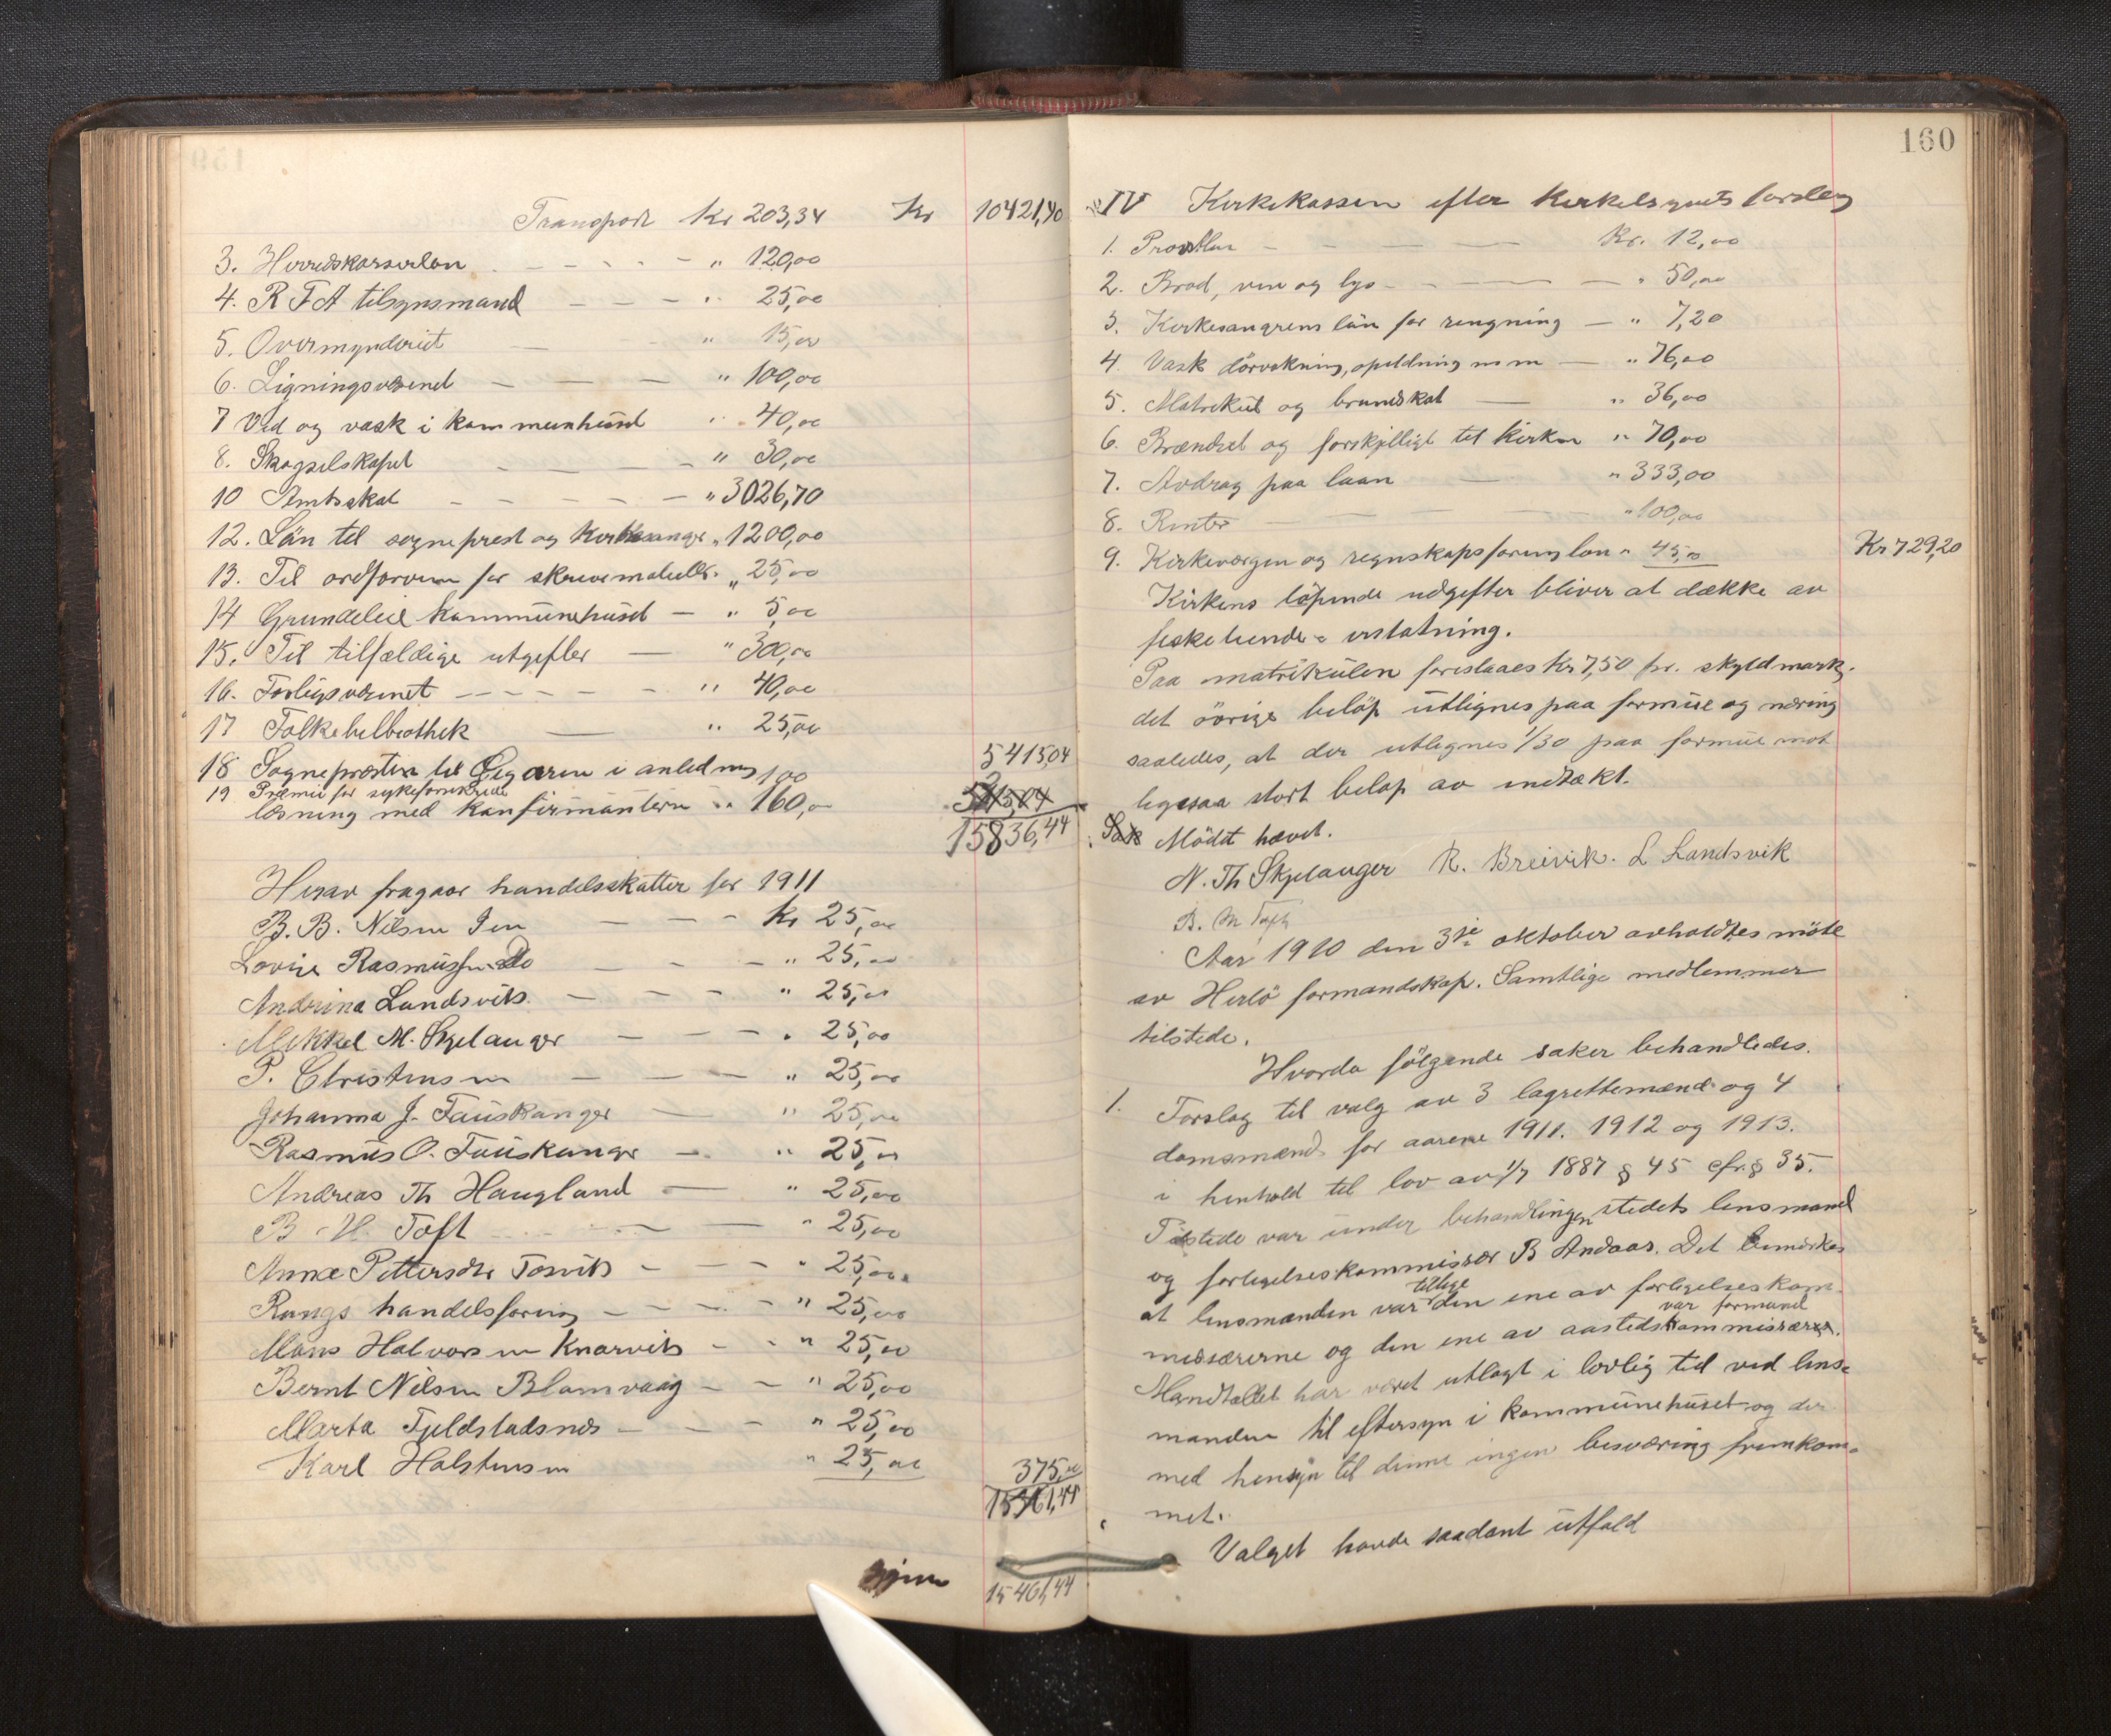 Transport Kr 203,34 Kr 10421,40
3. Herredskasserløn " 120,00
4. R F A tilsynsmand " 25,00
5. Overmynderiet " 15,00
6. Ligningsvæsend " 100,00
7 Ved og vask i kommunehuset " 40,00
8. Skogselskapet " 30,00
10 Amtsskat " 3026,70
12. Lön til sogneprest og kirkesanger " 1200,00
13. Til ordføreren for skrivematerialer " 25,00
14 Grundeleie kommunehuset " 5,00
15. Til tilfældige utgifter " 300,00
16. Forligsvæsenet " 40,00
17 Folkebibliothek " 25,00
5415,04
18 Sognepræsten til Cigaren i anledning 100
19 Præmie for sykeforsikrede
læsning med konfirmantern " 160,00
15836,44
Herav fragaar handelsskatter for 1911
B. B. Nilsen Jen kr 25,00
Lovise Rasmussen Do " 25,00
Andrina Landsvik " 25,00
Mikkel M. Skjelanger " 25,00
P. Christensen " 25,00
Johanna J. Fauskanger " 25,00
Rasmus O. Fauskanger " 25,00
Andreas Th Haugland " 25,00
B H. Toft " 25,00
Anna Pettersdtr Tosvik " 25,00
Rongs handelsforening " 25,00
Mons Halvorsen Knarvik " 25,00
Bernt Nilsen Blomvaag " 25,00
Marta Fjeldstadsnes " 25,00
Karl Halstensen " 25,00
375,00
15461,44
igjen 15461,44
160
IV Kirkekassen efter kirkelsynets forslag
1. Provstlen Kr. 12,00
2. Brød, vin og lys " 50,00
3. Kirkesangrens lön for rengning " 7,20
4 Vask dörvokning, opeldning m m " 76,00
5. Matrikul og brandskat " 36,00
6. Brændsel og forskjelligt til kirken " 70,00
7. Avdrag paa laan " 333,00
8. Renter " 100,00
9. Kirkeværgen og regnskapsföring løn " 45,00 Kr 729,20
Kirkens löpende udgifter bliver at dække av
fisketiende-erstatning.
Paa matrikulen foreslaaes Kr 7,50 pr. skyldmark,
det övrige belöp utlignes paa formue og næring
saaledes, at der utlignes 1/30 paa formue mot
ligesaa stort belöp av indtækt.
Sak Mödet hævet.
N. Th Skjelanger R. Breivik. L Landsvik
B. M Toft
Aar 1910 den 3dje oktober avholdtes möte
av Herlö formandskap. Samtlige medlemmer
tilstede.
Hvorda fölgende saker behandledes.
1. Forslag til valg av 3 lagrettemænd og 4
domsmænd for aarene 1911. 1912 og 1913.
i henhold til lov av 1/7 1887 § 45 cfr. § 35.
Tilstede var under behandlingen stedets lensmand
og forligelseskommissær B Andaas. Det bemærkes
at lensmanden var tillige den ene av forligelseskom-
missærerne og den ene av aastedskommissærer. var formand
Mandtallet har været utlagt i lovlig tid ved lens-
manden til eftersyn i kommunehuset og der
med hensyn til denne ingen besværing fremkom-
met.
Valget havde saadant utfald